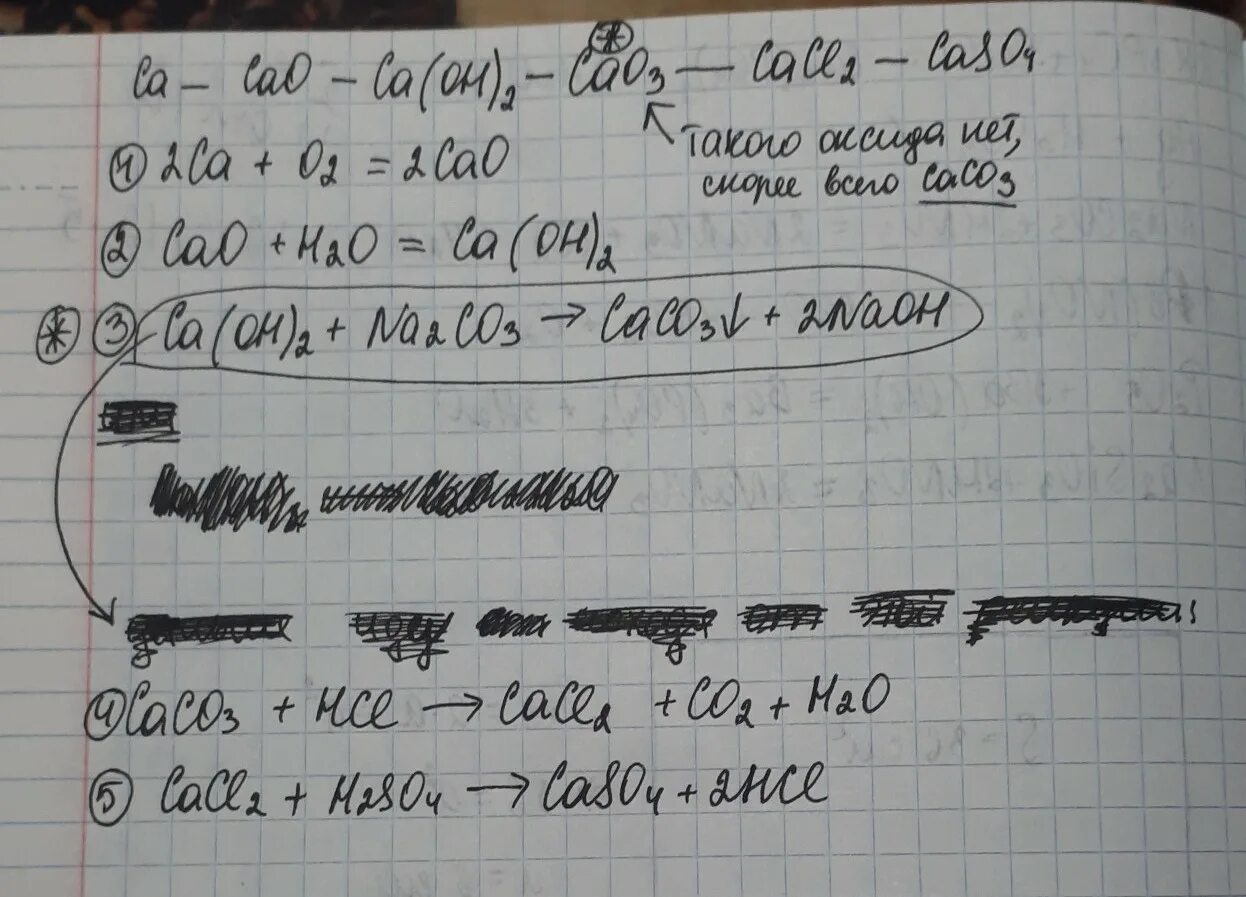 Ca - CaO - Ca(OH)₂ - CaO₃ - CaCl₂ - CaSO₄
такого оксида нет,
скорее всего CaCO₃
① 2Ca + O₂ = 2CaO
② CaO + H₂O = Ca(OH)₂
* ③ Ca(OH)₂ + Na₂CO₃ → CaCO₃↓ + 2NaOH
④ CaCO₃ + HCl → CaCl₂ + CO₂ + H₂O
⑤ CaCl₂ + H₂SO₄ → CaSO₄ + 2HCl